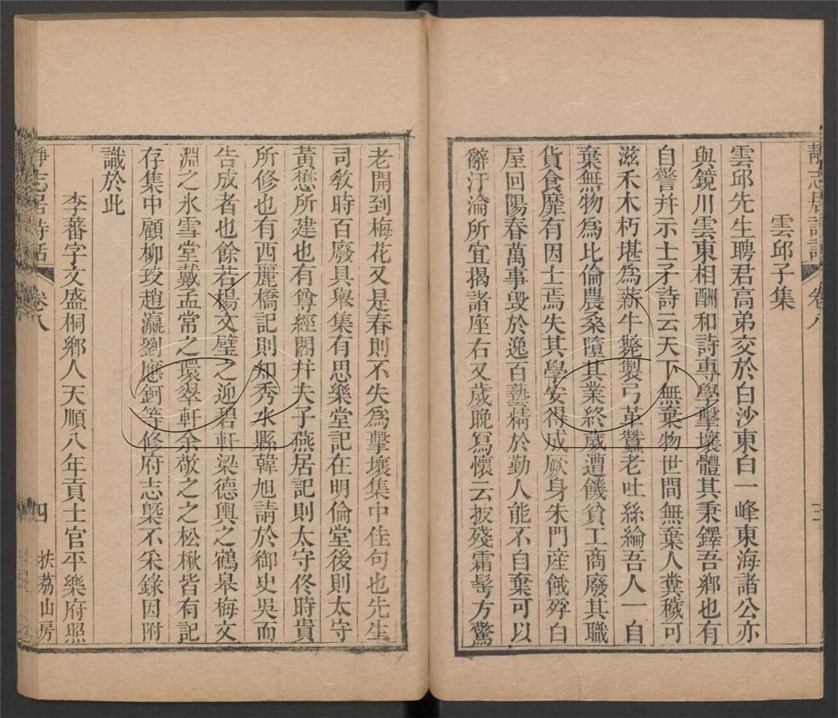 靜志居詩話
卷八
雲邱子集
雲邱先生聘君高弟交於白沙東白一峰東海諸公亦
與鏡川雲東相酬和詩專學擊壤體其秉鐸吾鄉也有
自警幷示士子詩云天下無棄物世間無棄人糞穢可
滋禾木朽堪爲薪牛斃製弓革蠶老吐絲綸吾人一自
棄無物爲比倫農桑墮其業終歲遭饑貧工商廢其職
貨食靡有因士焉失其學安得成厥身朱門産餓殍白
屋回陽春萬事毀於逸百藝精於勤人能不自棄可以
辭汙淪所宜揭諸座右又歲晚寫懷云披殘霜髩方驚
老開到梅花又是春則不失爲擊壤集中佳句也先生
司教時百廢具舉集有思樂堂記在明倫堂後則太守
黃懋所建也有尊經閣幷夫子燕居記則太守佟時貴
所修也有西麗橋記則知秀水縣韓旭請於御史吳而
告成者也餘若楊文璧之迎碧軒梁德輿之鶴皋梅文
淵之氷雪堂戴孟常之環翠軒余敬之之松楸皆有記
存集中顧柳玫趙瀛劉應鈳等修府志槩不采錄因附
識於此
李蕃字文盛桐鄉人天順八年貢士官平樂府照
靜志居詩話
卷八
四
扶荔山房